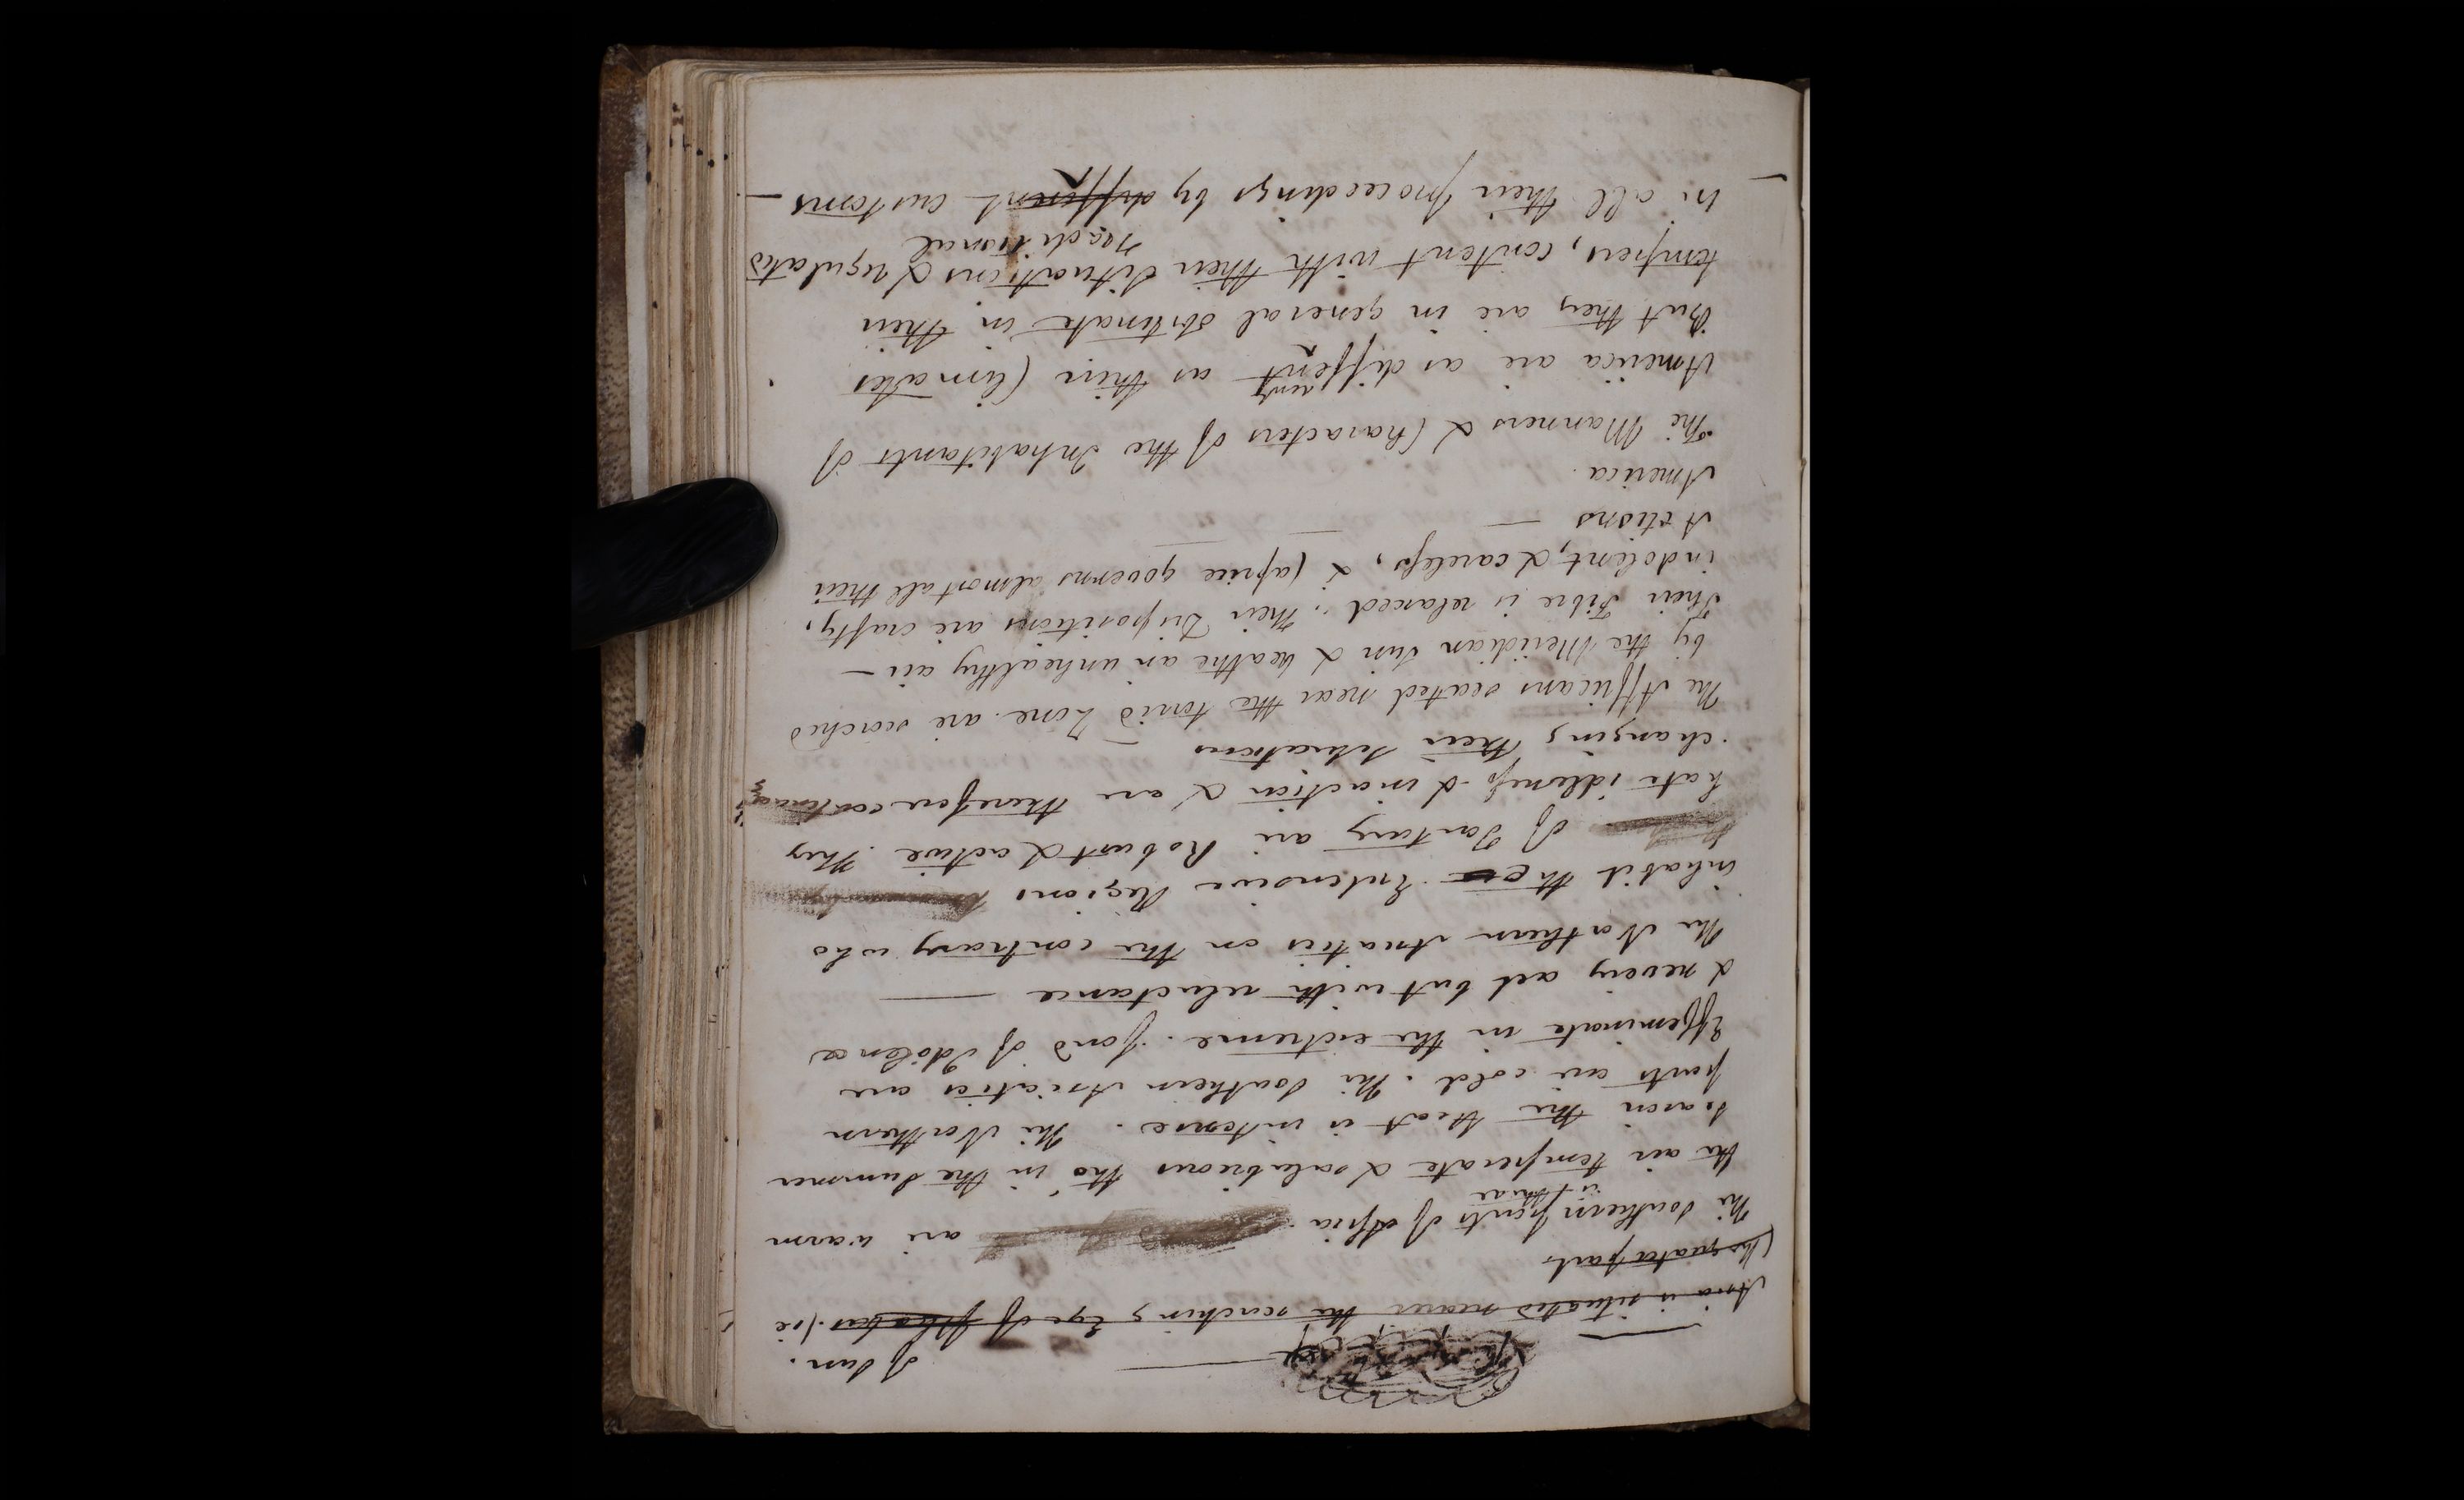 of Sun.
Asia is situated nearer the scorching Eye of Phœbus. (ie
(the greater part
The Southern parts of Afsia are warm
it & their
the air temperate & salubrious tho' in the Summer
season the Heat is intense. The Northern
parts are cold. The Southern Asiatics are
Effeminate in the extreme. fond of Idolence
& nevery act but with reluctance —
The Northern Asiatics on the contrary who
inhabit the Extensive Regions
of Tartary are Robust & active. They
hate idleness & inaction & are therefore continual
changing their Situations
The Affricans seated near the torrid Zone are scorched
by the Meridian Sun & breathe an unhealthy air —
Their Fibre is relaxed; their Dispositions are crafty,
indolent, & careless, & Caprice governs almost all their
Actions —
America.
The Manners & Characters of the Inhabitants of
rent
America are as diffent as their Climates
But they are in general obstinate in their
tempers, content with their situations & regulated
traditional
in all their proceedings by different customs —